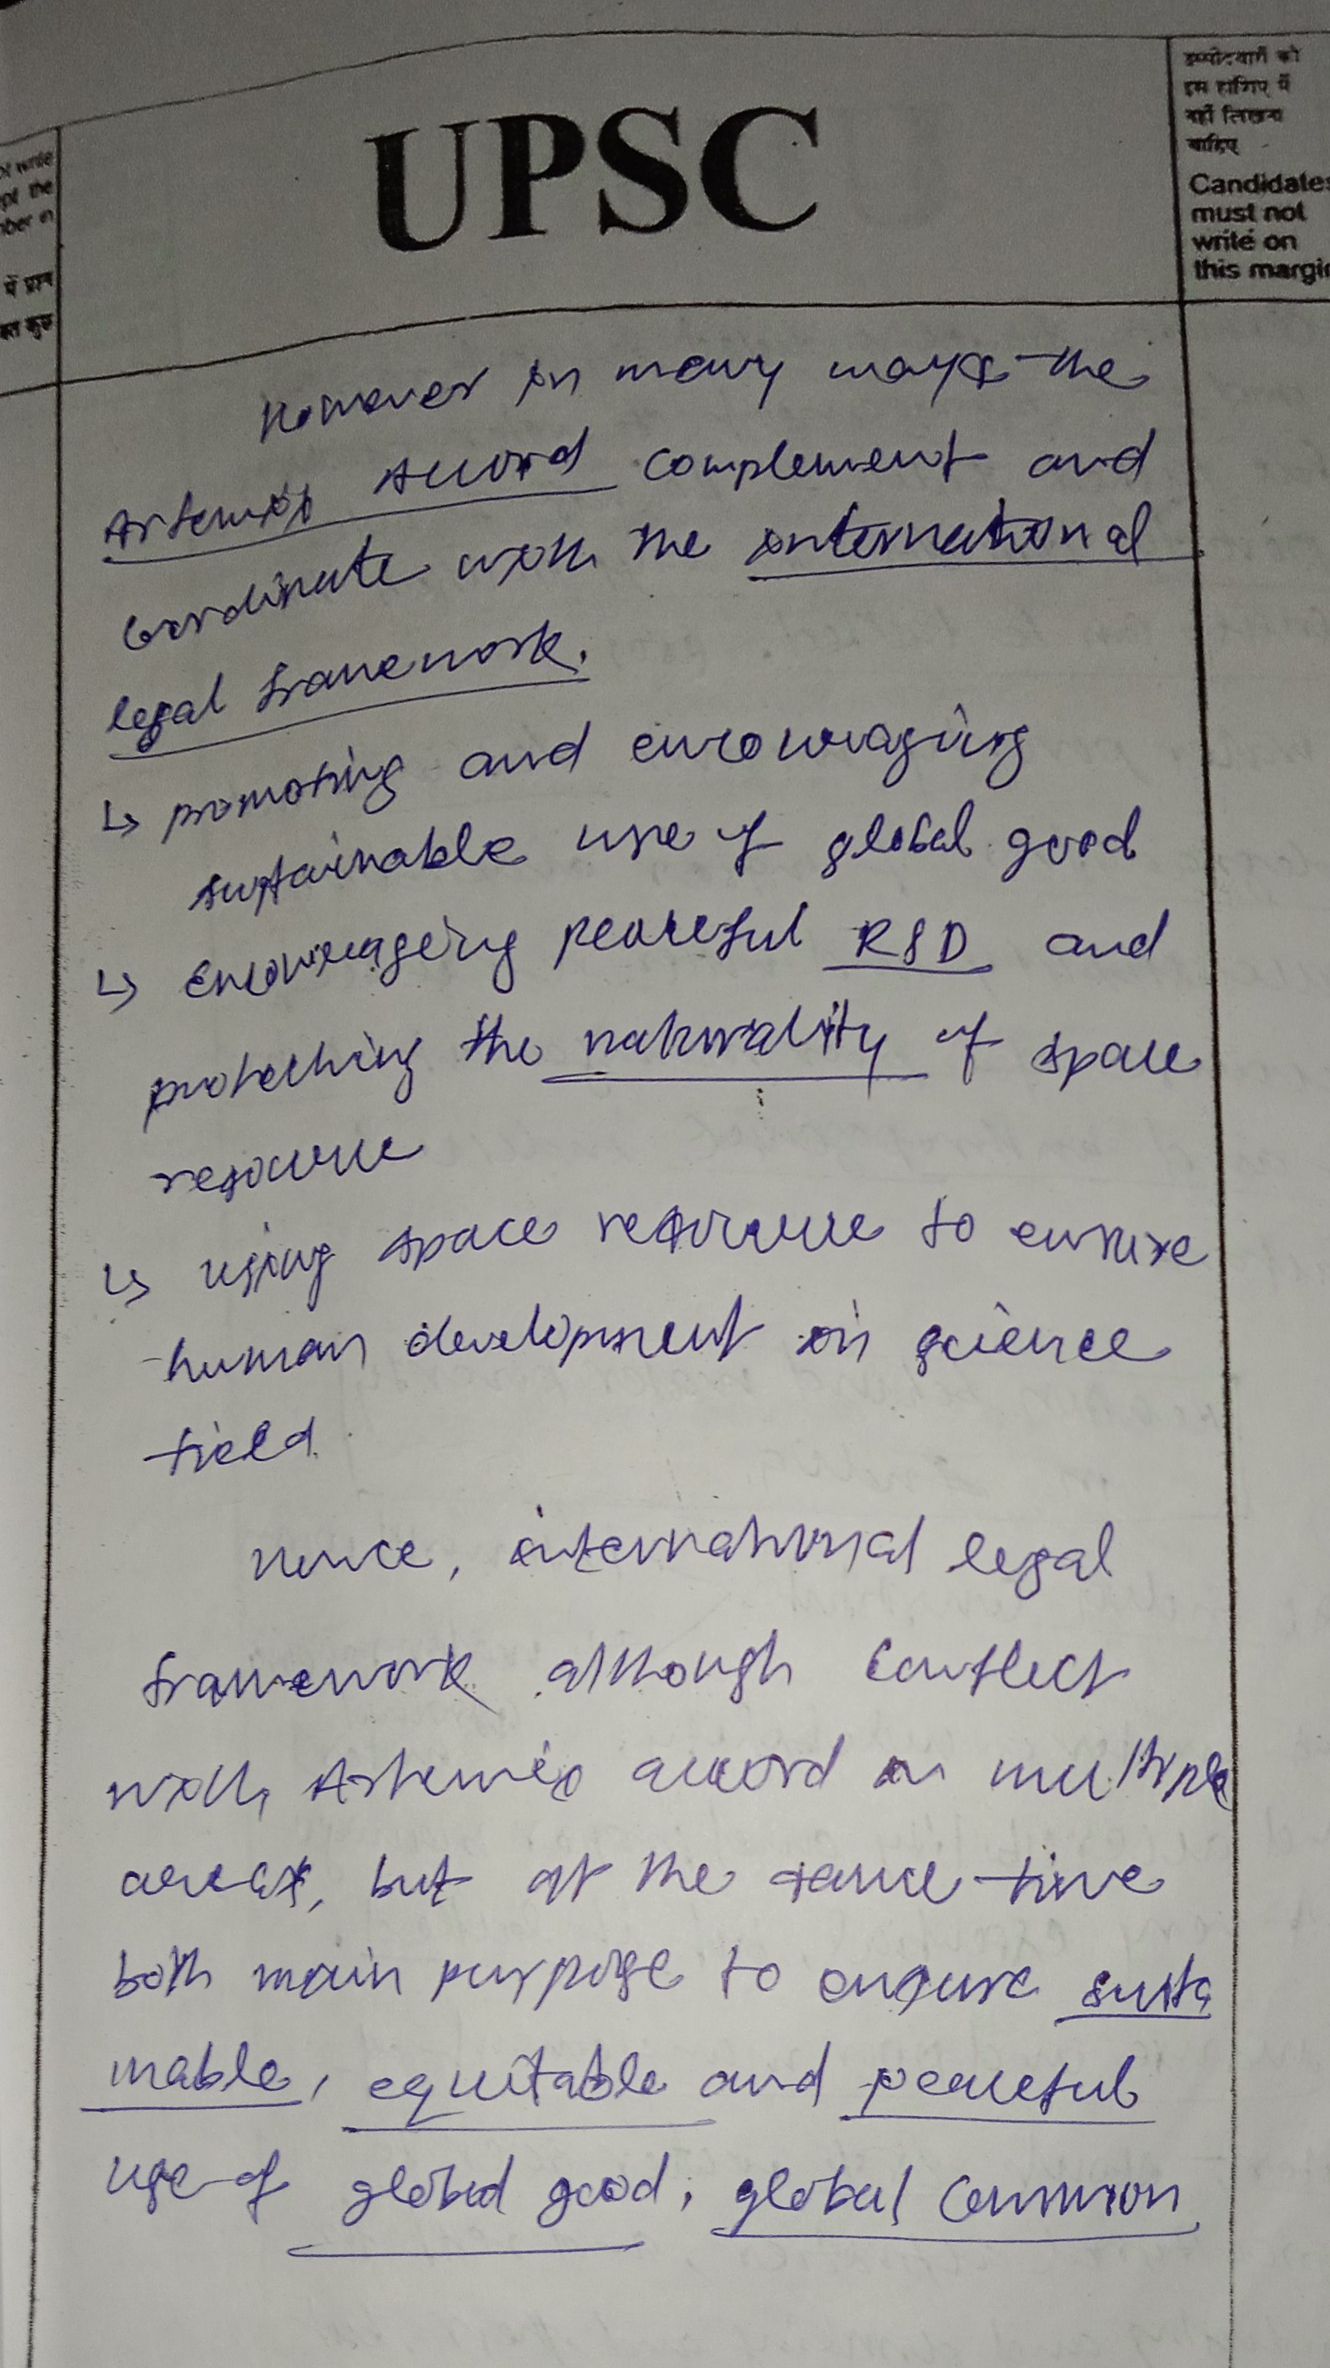 of write
ept the
mber in
में प्रश्न
UPSC
उम्मीदवारों को
इस हाशिए में
नहीं लिखना
चाहिए
Candidates
must not
write on
this margin
However in many ways the
Artemis Accord complement and
coordinate with the international
legal framework.
↳ promoting and encouraging
sustainable use of global good
↳ encouraging peaceful R&D and
protecting the naturality of space
resource
↳ using space resource to ensure
human development in science
field
Hence, international legal
framework although conflict
with Artemis accord on multiple
areas, but at the same time
both main purpose to ensure susta
inable, equitable and peaceful
use of global good, global common